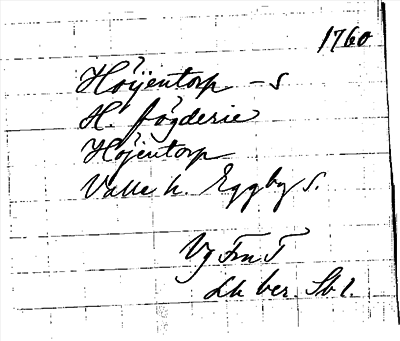 1760
Höijentorp - s
H. fögderie
Höjentorp
Valle h. Eggby s.
Vg Frn T
Lh ber. Sb 1.